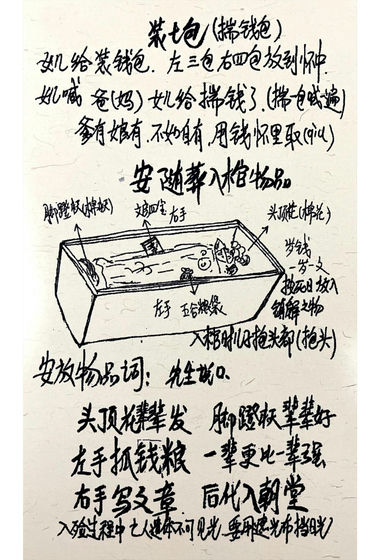 装七包(揣钱包)
女儿给装钱包，左三包右四包放到怀中
女儿喊 爸(妈) 女儿给揣钱了(揣包喊遍)
爹有娘有，不如自有，用钱怀里取(qiu)
安随葬入棺物品
脚蹬 文房四宝 右手 头顶花(棉花)
岁钱
岁一文
放入
左手 五谷粮袋 物
入棺时儿抱头部(抱头)
安放物品词：先生
头顶花辈辈发 脚蹬 辈辈好
左手抓钱粮 一辈更比一辈强
右手写文章 后代入朝堂
入殓过程中亡人遗体不可见光，要用遮光布挡日光)